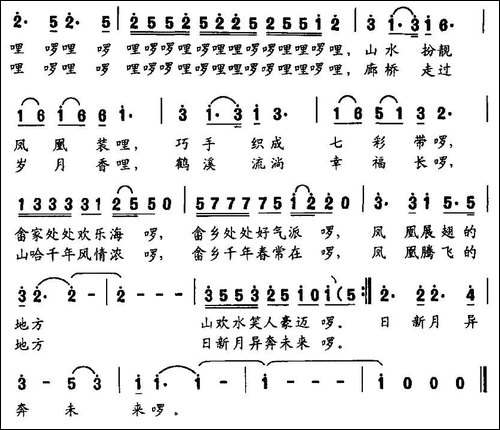 2· 5 2· 5 | 2 5 5 2 5 5 2 5 2 5 5 1 2 | 3 1·3 1 6· |
哩 啰哩 啰 哩啰啰哩啰啰哩啰哩啰啰哩啰, 山水 扮靓
哩 啰哩 啰 哩啰啰哩啰啰哩啰哩啰啰哩啰, 廊桥 走过
1 6 1 6 6 1· | 3 1·3 1 3· | 1 6 5 1 3 2· |
凤 凰 装哩, 巧手 织成 七 彩 带啰,
岁 月 香哩, 鹤溪 流淌 幸 福 长啰,
1 3 3 3 3 1 2 5 5 0 | 5 7 7 7 7 5 1 2 2 0 | 3· 3 3 1 5·5 |
畲家处处欢乐海 啰, 畲乡处处好气派 啰, 凤 凰展翅的
山哈千年风情浓 啰, 畲乡千年春常在 啰, 凤 凰腾飞的
3 2· 2 - | 2 - - - | 3 5 5 3 2 5 1 0 1 (5 :‖ 2· 2 2· 4 |
地方 山欢水笑人豪迈 啰。 日 新月 异
地方 日新月异奔未来 啰。
3 - 5 3 | 1 1· 1 - | 1 - - - | 1 0 0 0 ‖
奔 未 来啰。